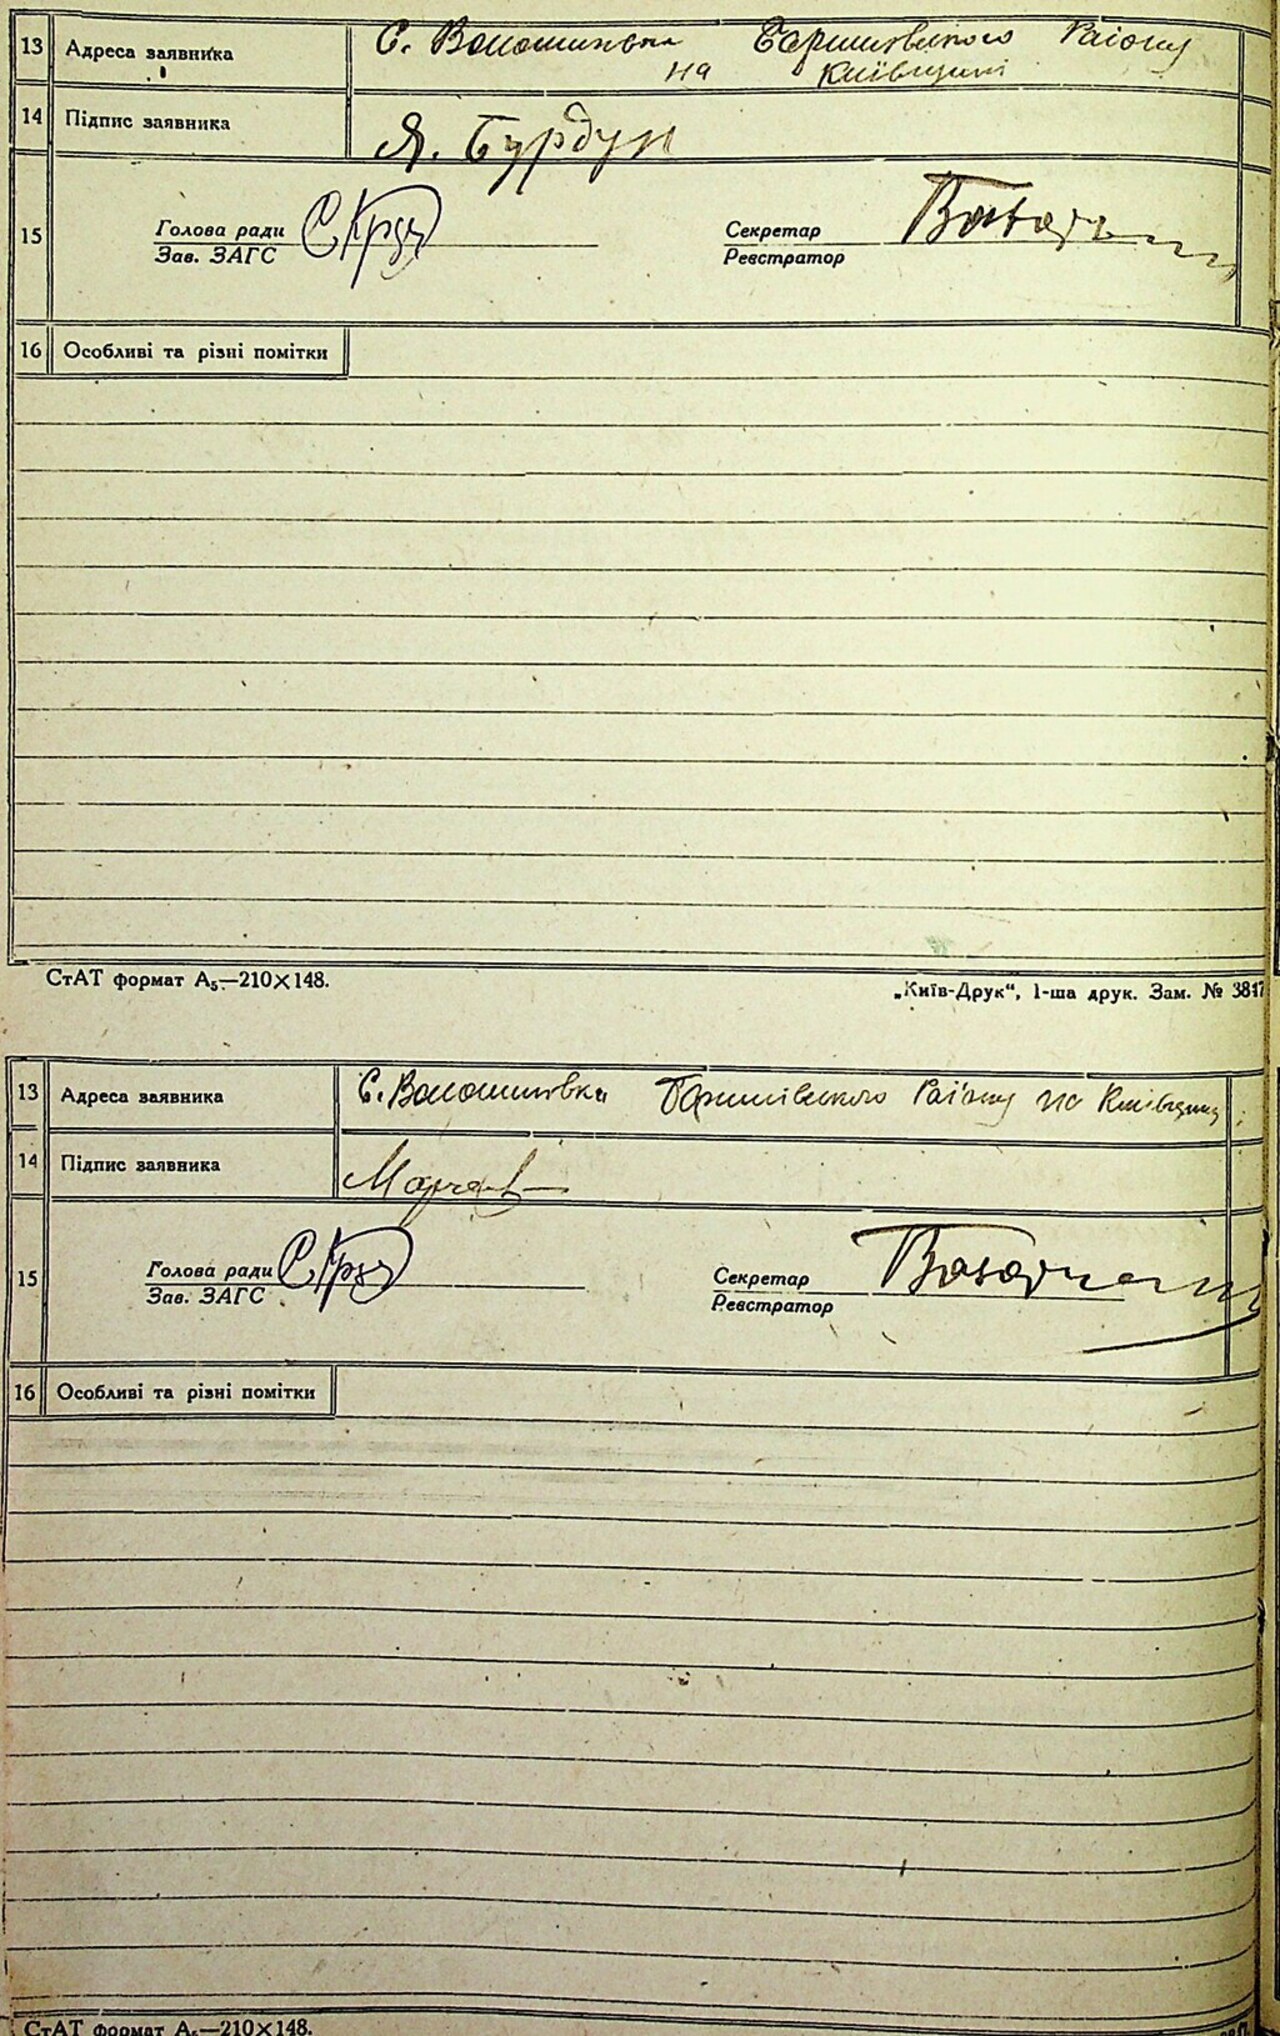 13 Адреса заявника С. Волошинівка Баришівського Району
на Київщині
14 Підпис заявника Я. Бурдун
15 Голова ради Секретар
Зав. ЗАГС Реєстратор
16 Особливі та різні помітки
СтАТ формат А₅—210×148. „Київ-Друк“, 1-ша друк. Зам. № 3817
13 Адреса заявника С. Волошинівка Баришівського Району на Київщині
14 Підпис заявника
15 Голова ради Секретар
Зав. ЗАГС Реєстратор
16 Особливі та різні помітки
СтАТ формат А₅—210×148.